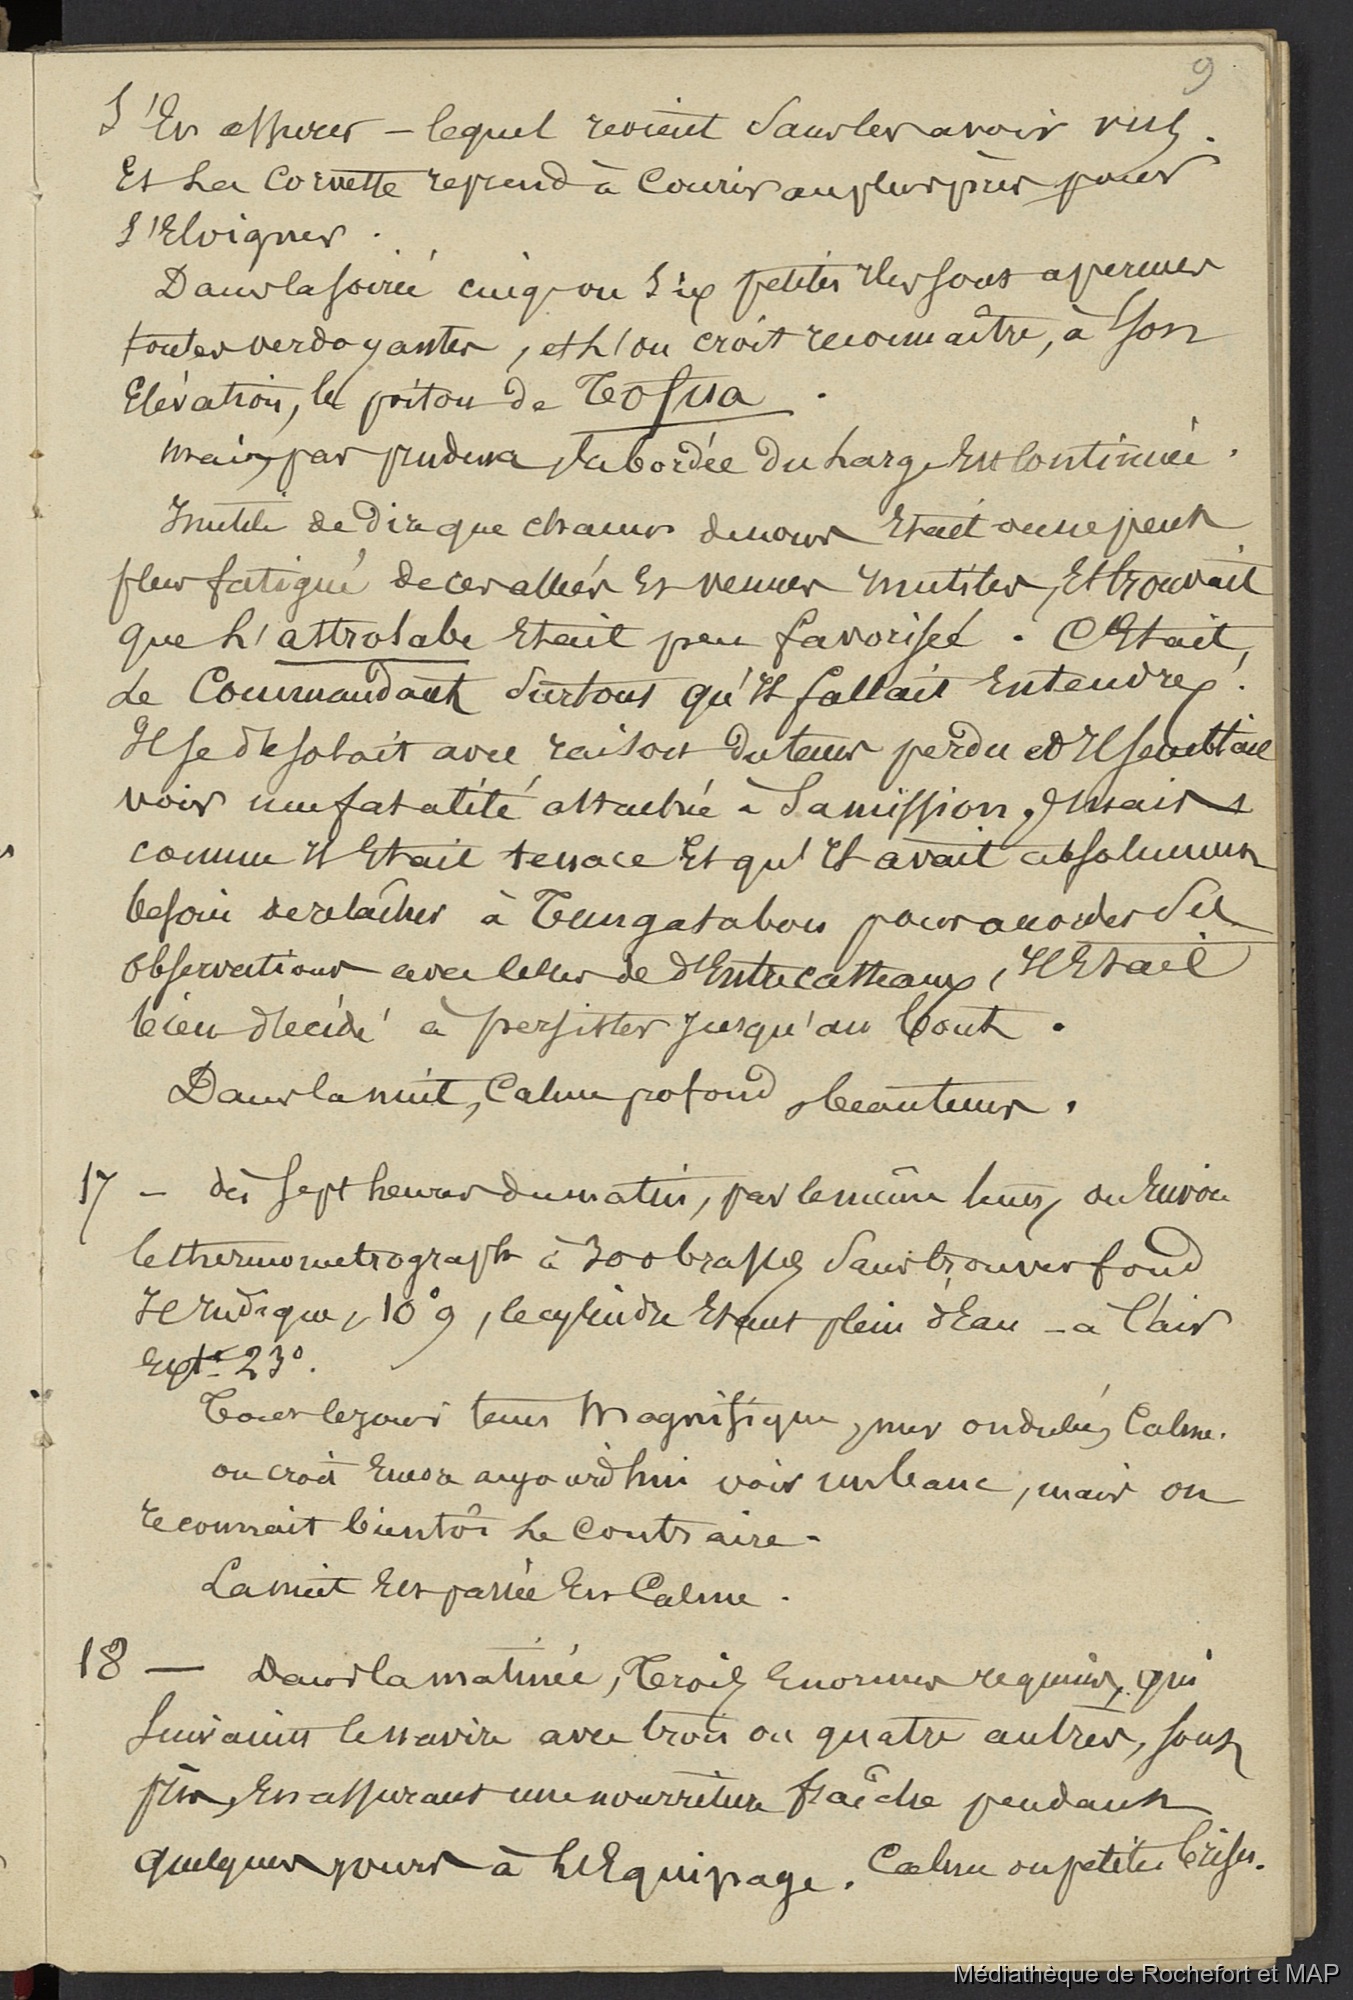 9
S'En assurer – lequel revient sans les avoir vus.
Et La Corvette reprend à Courir au plus près pour
S'Eloigner.
Dans la soirée cinq ou Six petites Iles sont aperçues
toutes verdoyantes, et L'on croit reconnaître, à Son
Elévation, le piton de Tofua.
mais, par prudence, la bordée du Large Est Continuée.
Inutile de Dire que chacun de nous Etait on ne peut
plus fatigué de ces allées Et venues Inutiles, Et trouvait
que L'astrolabe Etait peu favorisée. C'Etait,
Le Commandant Surtout qu'Il fallait Entendre !
Il se desolait avec raison du tems perdu et Il semblait
voir une fatalité attachée à Sa mission, mais
comme Il Etait tenace Et qu'Il avait absolument
besoin de relâcher à Tongatabou pour accorder Ses
Observations avec Celles de d'Entrecasteaux, Il Etait
bien décidé à persister jusqu'au bout.
Dans la nuit, Calme profond, beau tems.
17 – dès Sept heures du matin, par le même tems, on Envoie
le thermometrographe à 300 brasses Sans trouver fond
Il Indique, 10°9, le cylindre Etant plein d'Eau – à l'air
Extr 23°.
Tout le jour tems Magnifique, mer ondulée, Calme.
on croit Encore aujourd'hui voir un banc, mais on
reconnait bientôt Le Contraire.
La nuit Est passée En Calme.
18 — Dans la matinée, Trois Enormes requins, qui
Suivaient le navire avec trois ou quatre autres, sont
pris, En assurant une nourriture fraîche pendant
quelques jours à L'Equipage. Calme ou petites brises.
Médiathèque de Rochefort et MAP